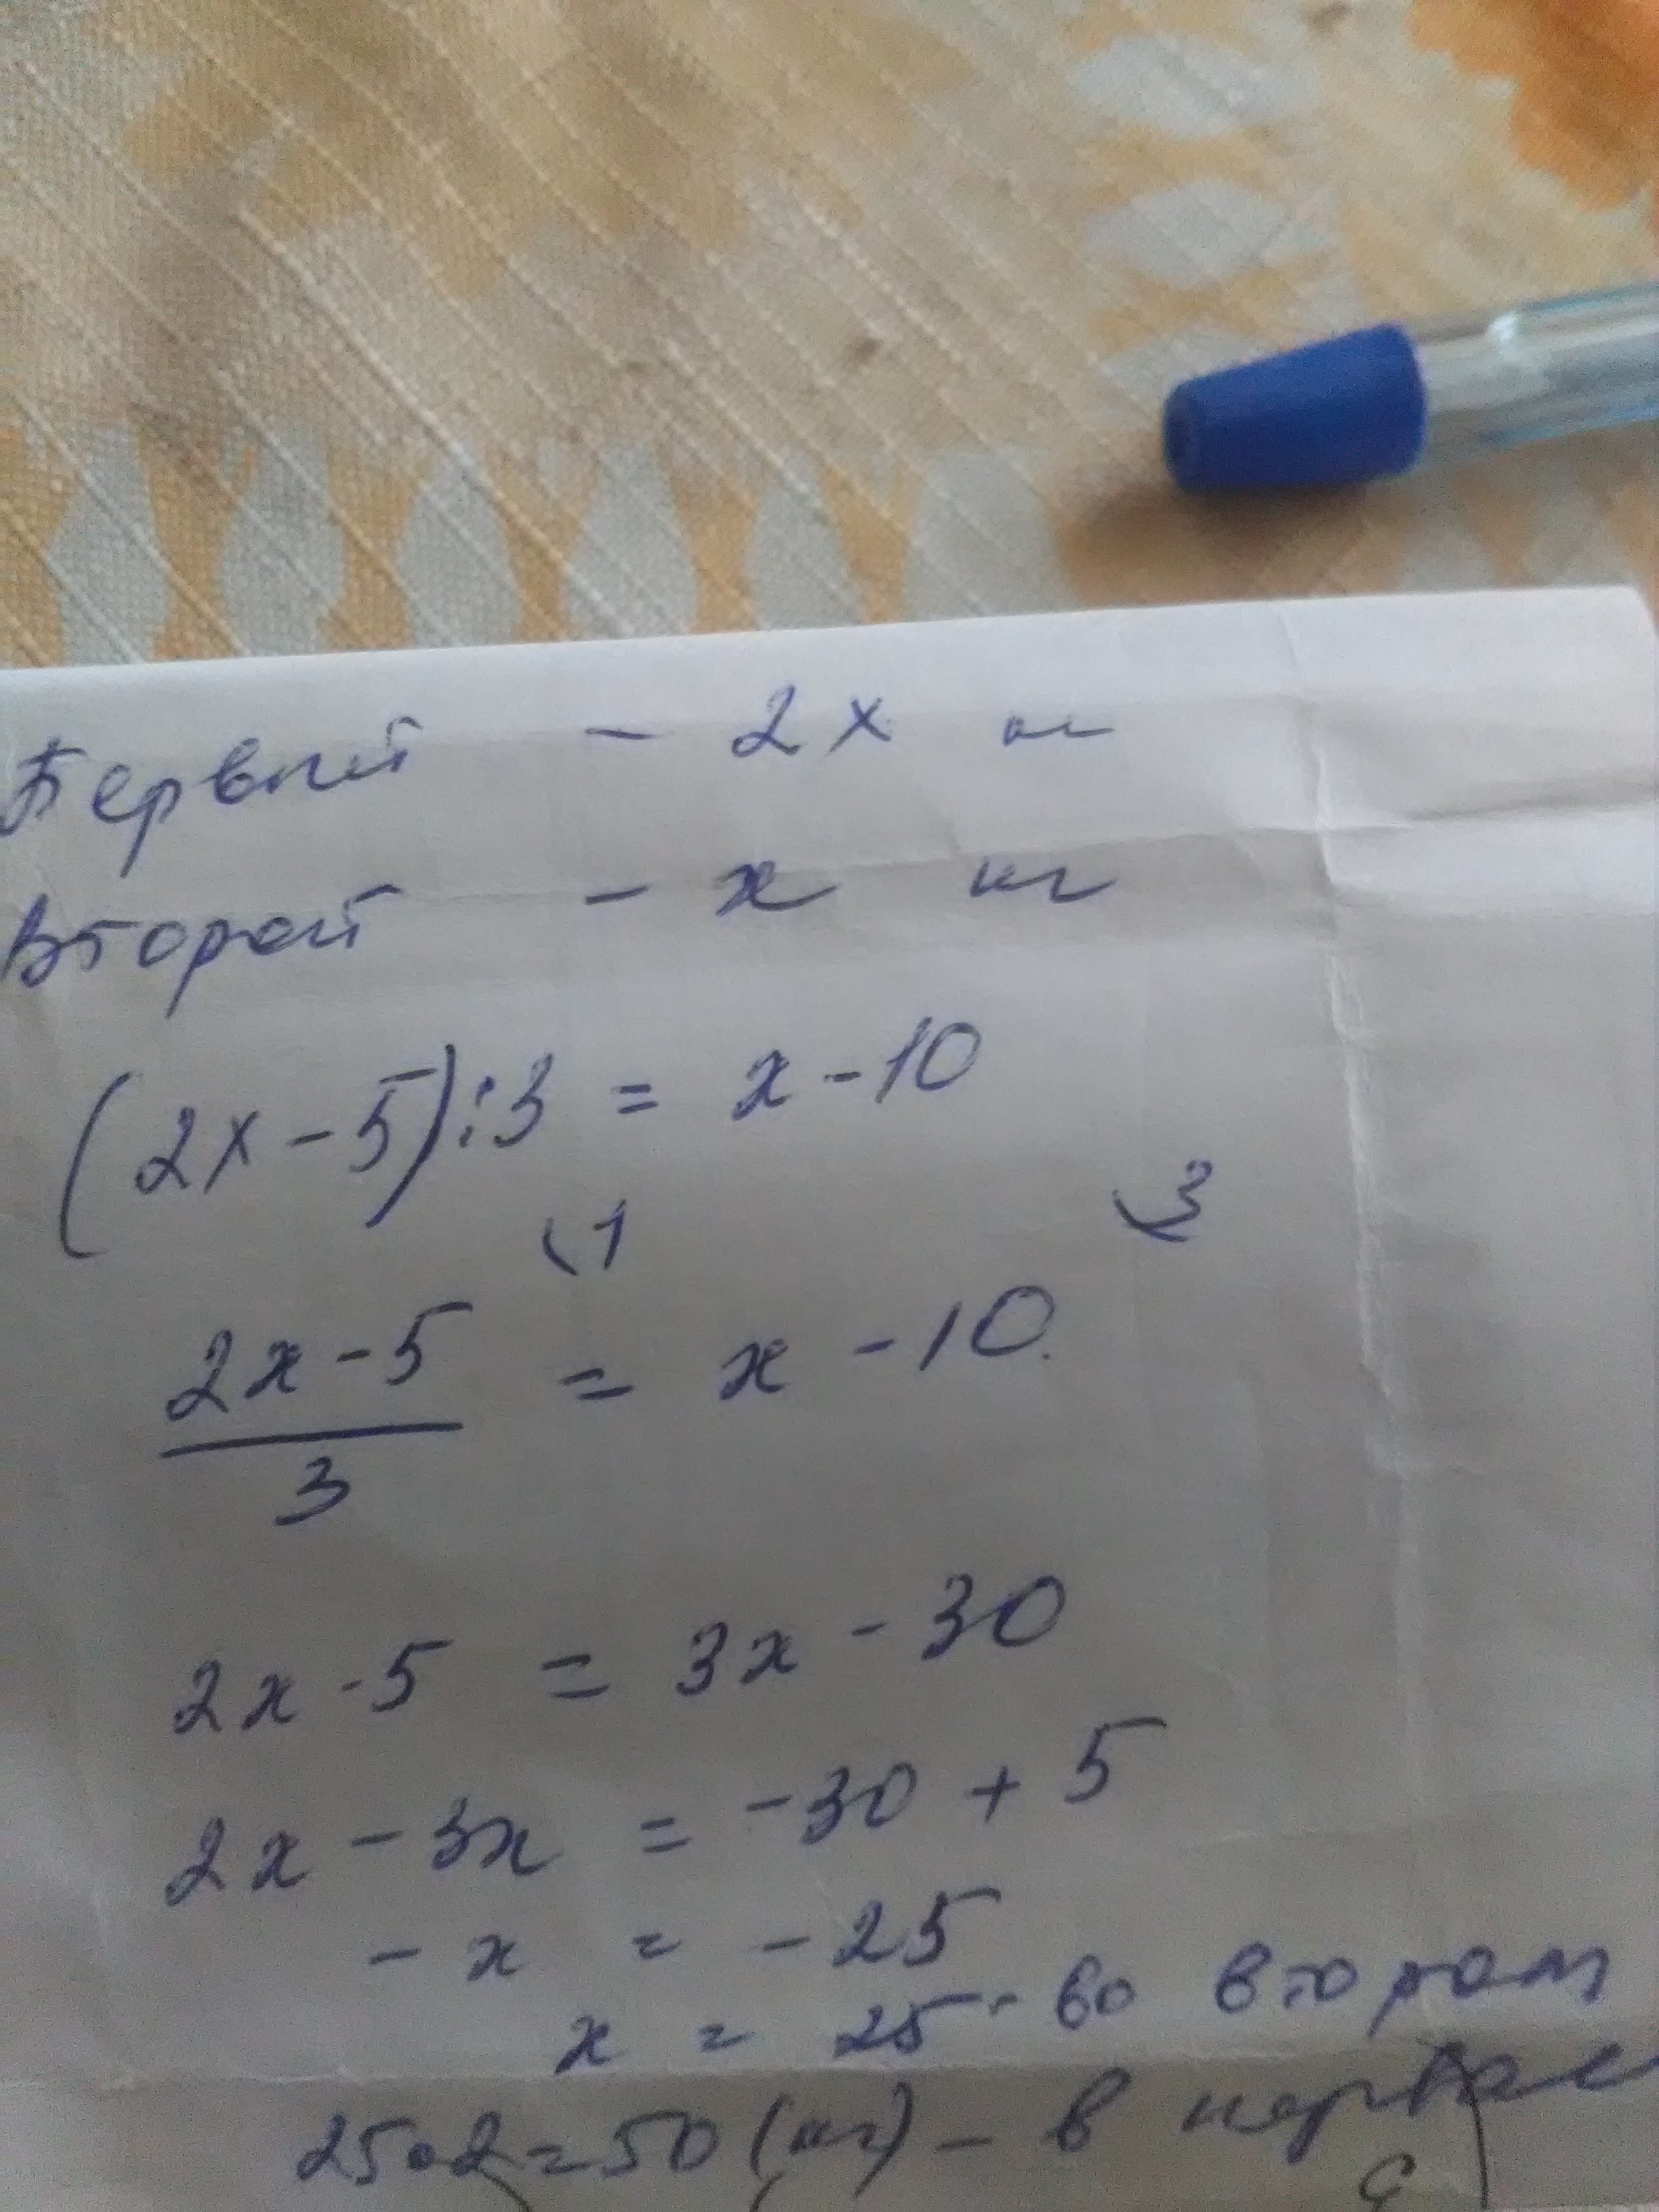 Первый - 2x кг
Второй - x кг
(2x - 5) : 3 = x - 10
(1 3
2x - 5 = x - 10
3
2x - 5 = 3x - 30
2x - 3x = -30 + 5
- x = - 25
x = 25 - во втором
25 • 2 = 50 (кг) - в первом